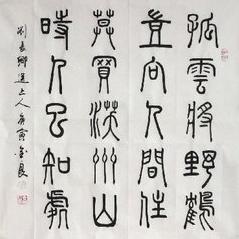 孤雲將野鶴
豈向人間住
莫買沃州山
時人已知處
劉長卿送上人 庚寅 金良